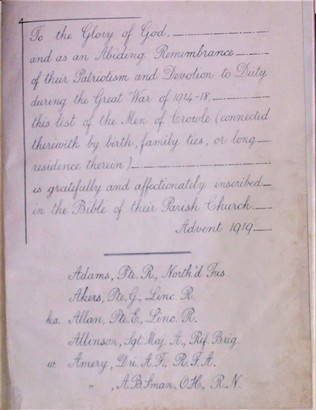 To the Glory of God,
and as an Abiding Remembrance
of their Patriotism and Devotion to Duty
during the Great War of 1914-18,
this list of the Men of Crowle (connected
therewith by birth, family ties, or long
residence therein)
is gratefully and affectionately inscribed
in the Bible of their Parish Church.
Advent 1919.
Adams, Pte. R., North'd Fus.
Akers, Pte. G., Linc. R.
ka. Allan, Pte. E., Linc. R.
Allinson, Sgt. Maj. A., Rif. Brig.
w. Amery, Dri. A.F., R.F.A.
" , A.B. Sman, O.H., R.N.